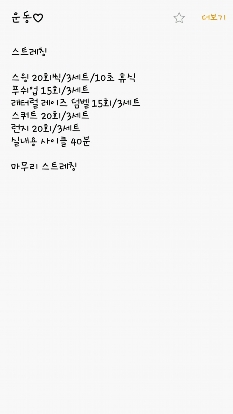 운동♡
더보기
스트레칭
스윙 20회씩/3세트/10초 휴식
푸쉬업 15회/3세트
래터럴 레이즈 덤벨 15회/3세트
스쿼트 20회/3세트
런지 20회/3세트
실내용 사이클 40분
마무리 스트레칭